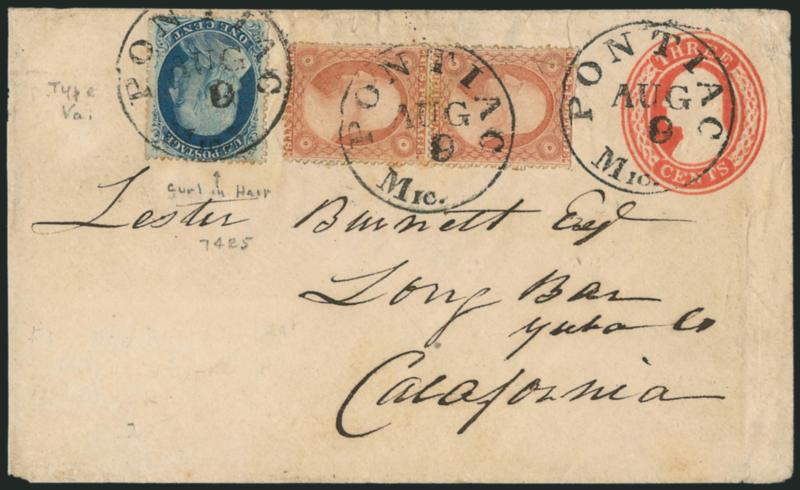 PONTIAC
AUG
9
PONTIAC
AUG
9
Mic.
PONTIAC
AUG
9
Mic.
ONE CENT
U.S. POSTAGE
THREE
CENTS
Type
Va.
Curl in Hair
7425
Lester Burnett Esq
Long Bar
Yuba Co
California